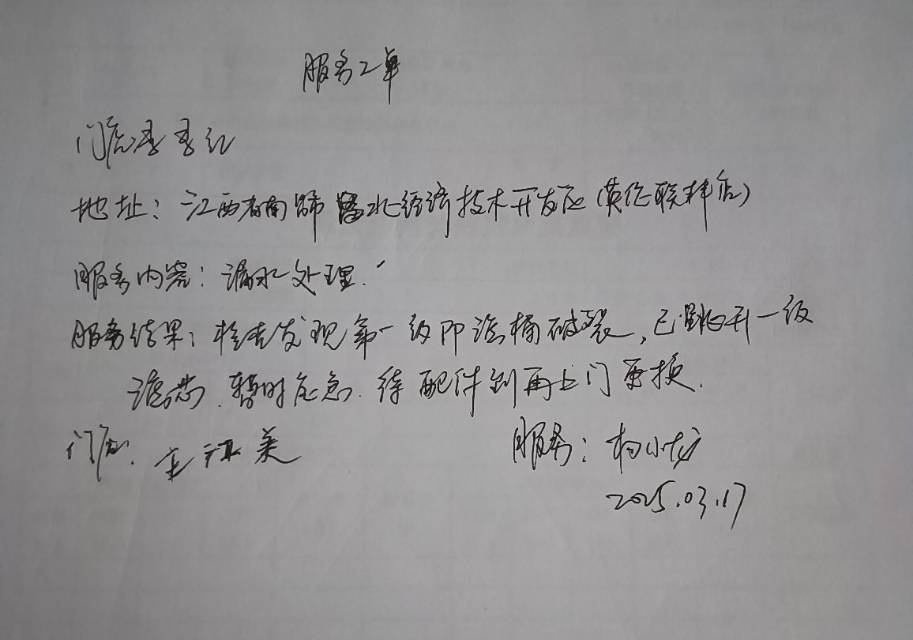 服务工单
门店
地址：江西省南 水经济技术开发区（英伦联邦店）
服务内容：漏水处理.
服务结果：检查发现第一级PP滤桶破裂，已跳开一级
滤芯.暂时应急.待配件到再上门更换.
门店. 美
服务：杨小龙
2025.03.17